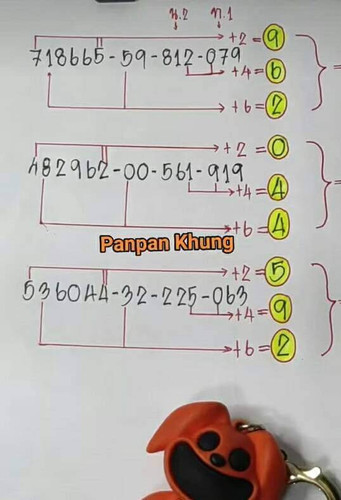 ท.2 ท.1
+2 = 9
718665-59-812-079
+4 = 6
+6 = 2
+2 = 0
482962-00-561-919
+4 = 4
+6 = 4
Panpan Khung
+2 = 5
536044-32-225-063
+4 = 9
+6 = 2